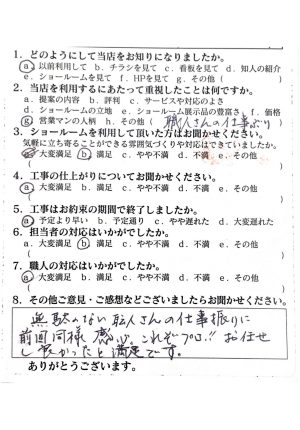 1．どのようにして当店をお知りになりましたか。
ⓐ.以前利用して b．チラシを見て c．看板を見て d．知人の紹介
e．ショールームを見て f．HPを見て g．その他（
)
2．当店を利用するにあたって重視したことは何ですか。
a．提案の内容 b．評判 c．サービスや対応のよさ
d．ショールームの立地 e．ショールーム展示品の豊富さ f．価格
ⓖ 営業マンの人柄 h．その他（ 職人さんの仕事ぶり )
3．ショールームを利用して頂いた方はお聞かせください。
気軽に立ち寄ることができる雰囲気づくりや対応はできていましたか。
大変満足 ⓑ.満足 c．やや不満 d．不満 e．その他
( )
4．工事の仕上がりについてお聞かせください。
ⓐ.大変満足 b．満足 c．やや不満 d．不満 e．その他
( )
5．工事はお約束の期間で終了しましたか。
ⓐ.予定より早い b．予定通り c．やや遅れた d．大変遅れた
6．担当者の対応はいかがでしたか。
a．大変満足 ⓑ.満足 c．やや不満 d．不満 e．その他
( )
7．職人の対応はいかがでしたか。
ⓐ.大変満足 b．満足 c．やや不満 d．不満 e．その他
( )
8．その他ご意見・ご感想などございましたらお聞かせください。
無駄のない職人さんの仕事振りに
前回同様感心。これぞプロ!! お任せ
し良かったと満足です。
ありがとうございます。